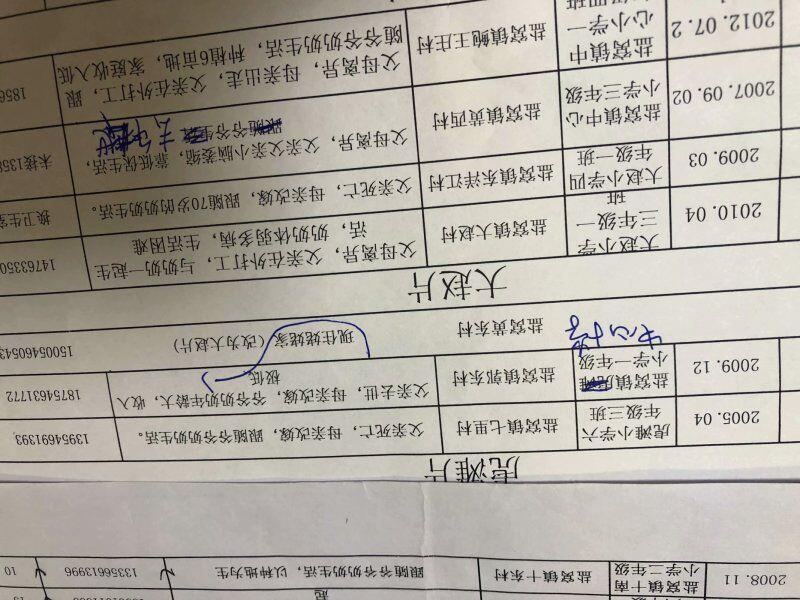 起
2008.11
盐窝镇十南
小学二年级
盐窝镇十东村
跟随爷爷奶奶生活，以种地为生
13356613996
10
虎滩片
2005.04
虎滩小学六
年级三班
盐窝镇七里村
父亲死亡，母亲改嫁，跟随爷爷奶奶生活。
13954691393
2009.12
盐窝镇虎滩
小学一年级
盐窝镇郭东村
父亲去世，母亲改嫁，爷爷奶奶年龄大，收入
极低
18754631772
中心小学
盐窝黄东村
现住姥姥家（改为大赵片）
15005460543
大赵片
2010.04
大赵小学
三年级一
班
盐窝镇大赵村
父母离异，父亲在外打工，与奶奶一起生
活，奶奶体弱多病，生活困难
14763350
2009.03
大赵小学四
年级一班
盐窝镇东洋江村
父亲死亡，母亲改嫁，跟随70岁的奶奶生活。
换卫生室
2007.09.02
盐窝镇中心
小学三年级
盐窝镇黄西村
父母离异，父亲父亲小脑萎缩，靠低保生活，
跟随爷爷生
未接1358
2012.07.2
盐窝镇中
心小学一
年级四班
盐窝镇鲍王庄村
父母离异，母亲出走，父亲在外打工，跟
随爷爷奶奶生活，种植6亩地，家庭收入低
1856